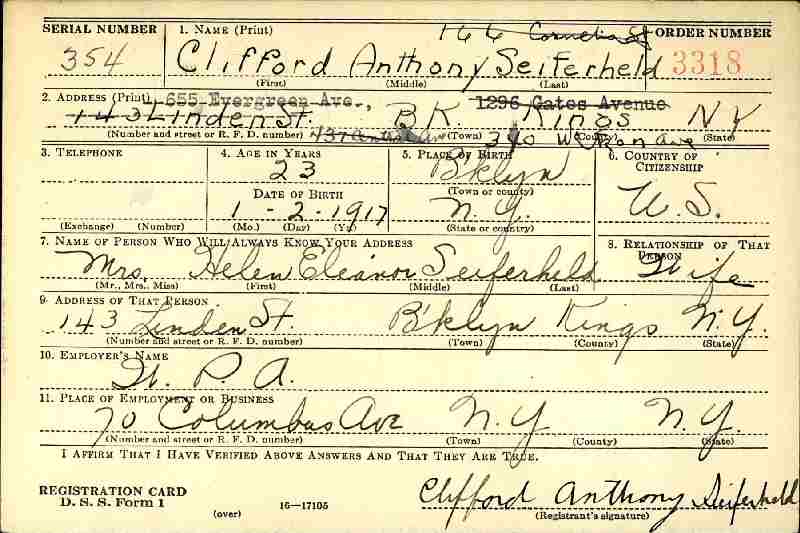 SERIAL NUMBER 1. NAME (Print) 166 Cornelia St ORDER NUMBER
354 Clifford Anthony Seiferheld 3318
(First) (Middle) (Last)
2. ADDRESS (Print) 655 Evergreen Ave., 1296 Gates Avenue
143 Linden St. BK. Kings NY
(Number and street or R. F. D. number) (Town) (County) (State)
3. TELEPHONE 4. AGE IN YEARS 5. PLACE OF BIRTH 6. COUNTRY OF CITIZENSHIP
23 Bklyn
DATE OF BIRTH (Town or county)
1 - 2 - 1917 N. Y. U. S.
(Exchange) (Number) (Mo.) (Day) (Yr.) (State or country)
7. NAME OF PERSON WHO WILL ALWAYS KNOW YOUR ADDRESS 8. RELATIONSHIP OF THAT PERSON
Mrs. Helen Eleanor Seiferheld Wife
(Mr., Mrs., Miss) (First) (Middle) (Last)
9. ADDRESS OF THAT PERSON
143 Linden St. B'klyn Kings N.Y.
(Number and street or R. F. D. number) (Town) (County) (State)
10. EMPLOYER'S NAME
W. P. A.
11. PLACE OF EMPLOYMENT OR BUSINESS
70 Columbus Ave N. Y N. Y.
(Number and street or R. F. D. number) (Town) (County) (State)
I AFFIRM THAT I HAVE VERIFIED ABOVE ANSWERS AND THAT THEY ARE TRUE.
REGISTRATION CARD Clifford Anthony Seiferheld
D. S. S. Form 1 16—17105
(over) (Registrant's signature)